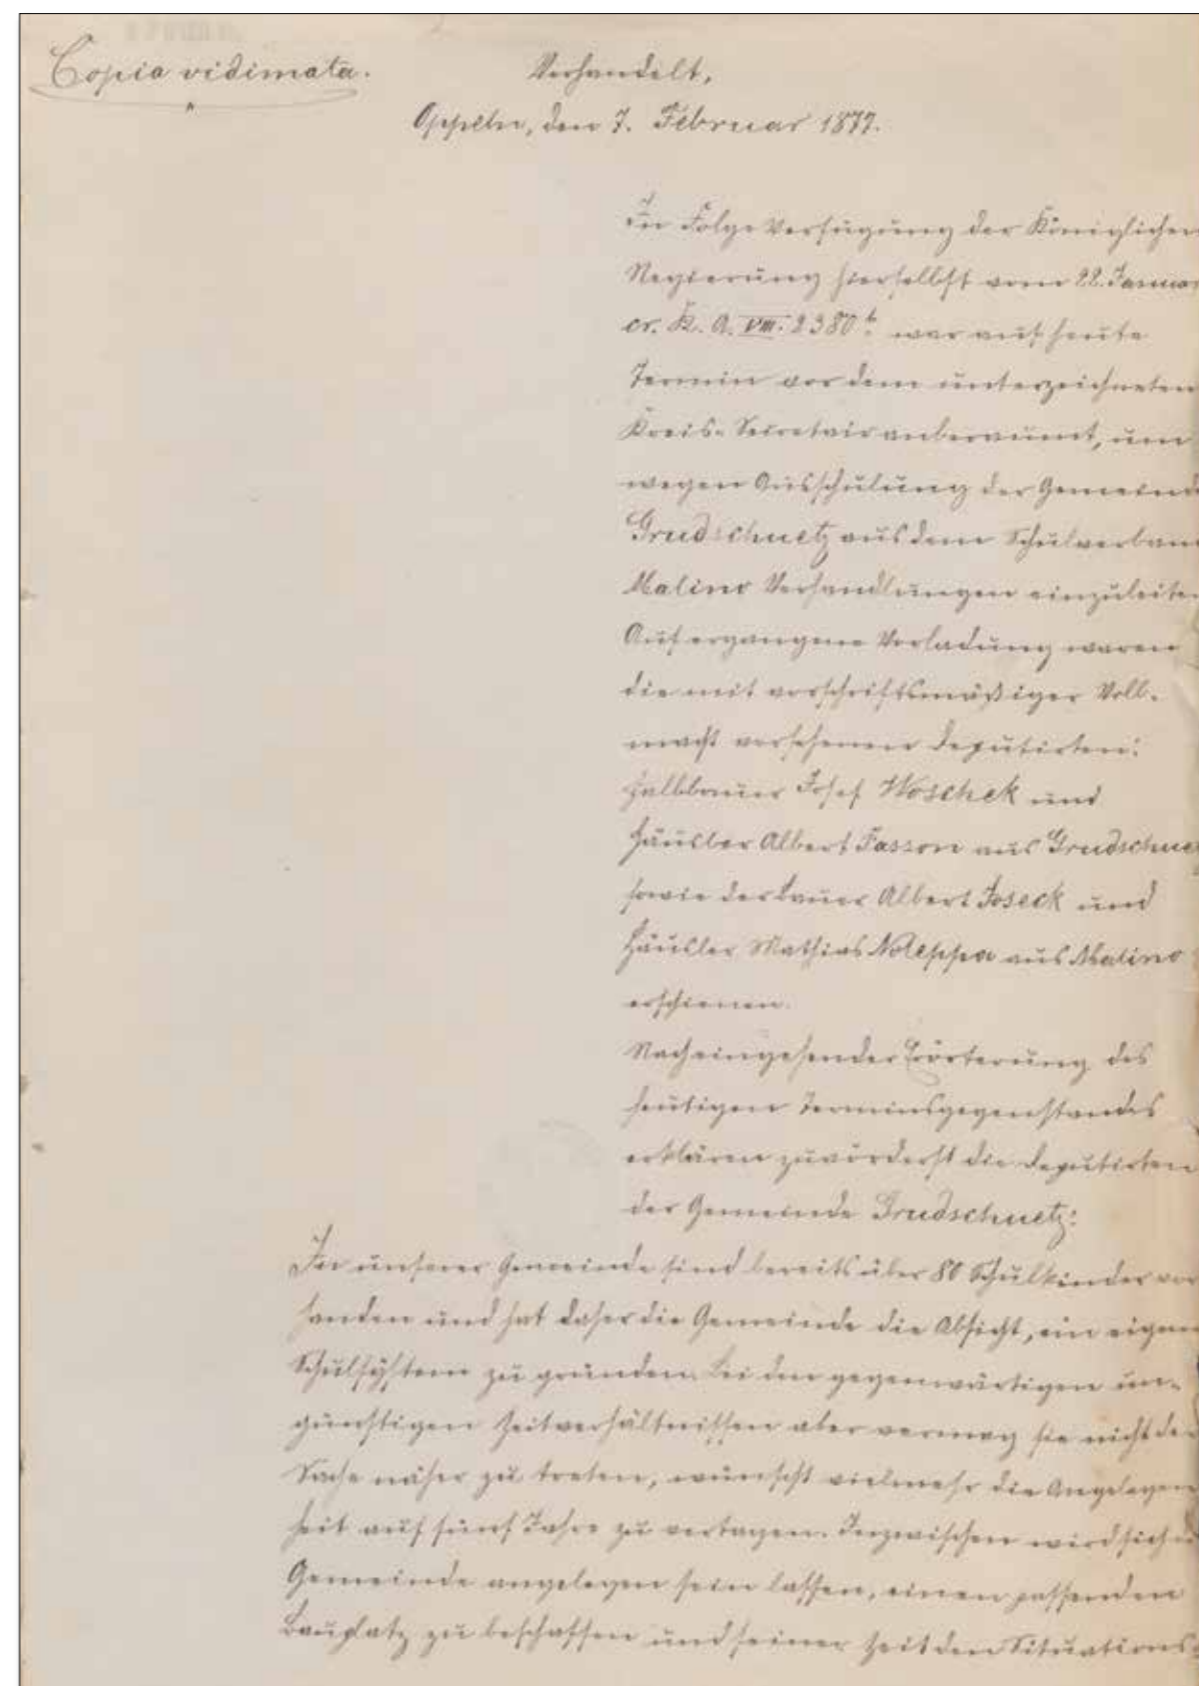 Copia vidimata.
Verhandelt,
Oppeln, den 7. Februar 1877.
In Folge Verfügung der Königlichen
Regierung hierselbst vom 22. Januar
cr. K. A. VIII. 2380 b war auf heute
Termin vor dem unterzeichneten
Kreis-Secretair anberaumt, um
wegen Ausschulung der Gemeinde
Grudschuetz aus dem Schulverban
Malino Verhandlungen einzuleiten
Auf ergangene Vorladung waren
die mit vorschriftsmäßiger Voll-
macht versehenen Deputirten:
Halbbauer Josef Woschek und
Häusler Albert Fasson aus Grudschue
sowie der Bauer Albert Joseck und
Häusler Mathias Noleppa aus Malino
erschienen.
Nach eingehender Erörterung des
heutigen Terminsgegenstandes
erklären zuvörderst die Deputirten
der Gemeinde Grudschuetz:
In unserer Gemeinde sind bereits über 80 Schulkinder vor
handen und hat daher die Gemeinde die Absicht, ein eigen
Schulsystem zu gründen. Bei den gegenwärtigen un-
günstigen Zeitverhältnissen aber vermag sie nicht der
Sache näher zu treten, wünscht vielmehr die Angelegen
heit auf fünf Jahre zu vertagen. Inzwischen wird sich
Gemeinde angelegen sein lassen, einen passenden
Bauplatz zu beschaffen und seiner Zeit den Situations-